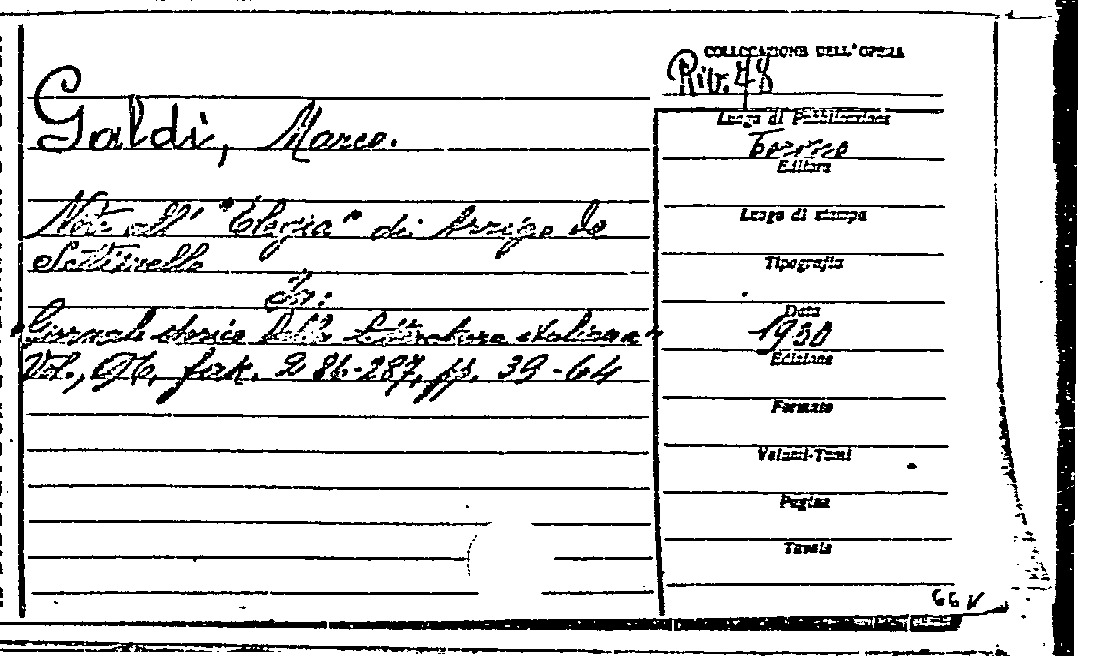 COLLOCAZIONE DELL'OPERA
Riv. 48
Galdi, Marco.
Note all' "Elegia" di Arrigo da
Settimello
In:
"Giornale storico della letteratura italiana"
Vol., 96, fasc. 286-287, pp. 39-64
Luogo di Pubblicazione
Torino
Editore
Luogo di stampa
Tipografia
Data
1930
Edizione
Formato
Volumi-Tomi
Pagine
Tavole